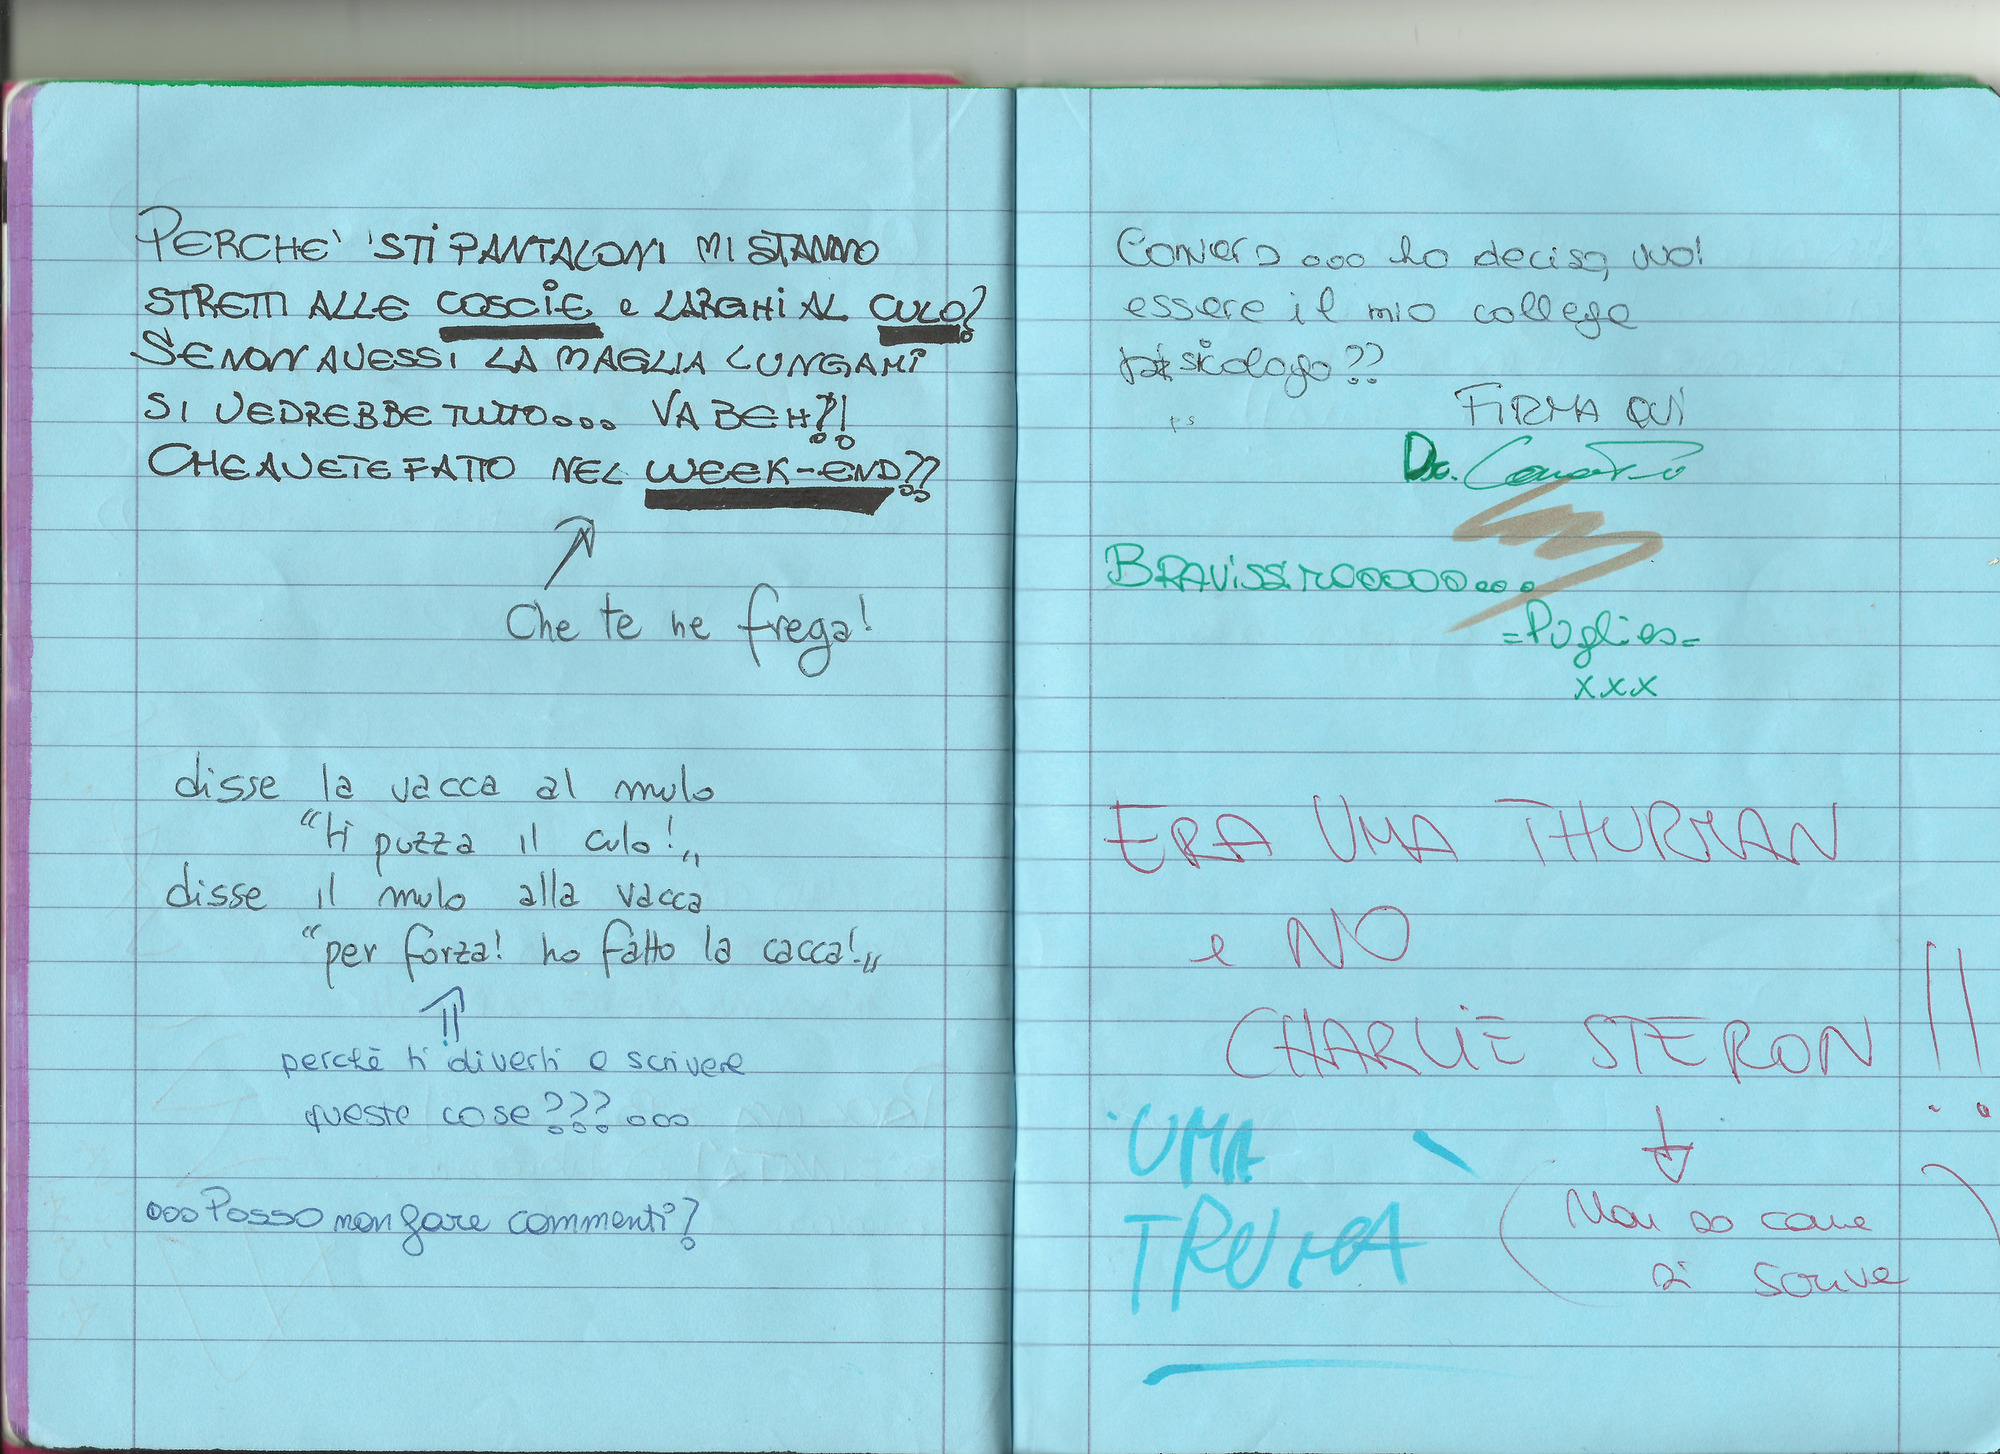 PERCHE' 'STI PANTALONI MI STANNO
STRETTI ALLE COSCIE e LARGHI AL CULO?
SE NON AVESSI LA MAGLIA LUNGA MI
SI VEDREBBE TUTTO... VA BEH?!
CHE AVETE FATTO NEL WEEK-END??
Che te ne frega!
disse la vacca al mulo
"ti puzza il culo!"
disse il mulo alla vacca
"per forza! ho fatto la cacca!"
perché ti diverti a scrivere
queste cose???...
...Posso non fare commenti?
... ho deciso, vuoi
essere il mio collega
psicologo??
ps
FIRMA QUI
BRAVISSIMOOOOO...
=Puglies=
xxx
ERA UMA THURMAN
e NO
CHARLIE STERON!!
(Non so come
si scrive)
UMA
TRUMA